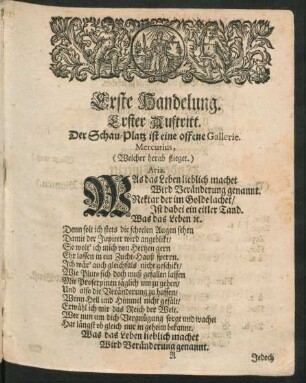 Erste Handelung.
Erster Auftritt.
Der Schau-Platz ist eine offene Gallerie.
Mercurius,
(Welcher herab stieget.)
Aria.
WAs das Leben lieblich machet
Wird Veränderung genannt.
Nektar der im Golde lachet/
Ist dabei ein eitler Tand.
Was das Leben ec.
Denn solt ich stets die scheelen Augen sehen
Damit der Jupiter wird angeblikt:
So wolt' ich mich von Hertzen gern
Ehr lassen in ein Zucht-Hauß sperren.
Ich wär' auch gleichfals nicht geschikt/
Wie Pluto sich doch muß gefallen lassen
Mit Proserpinen täglich um zu gehen/
Und alle die Veränderung zu hassen/
Wenn Hell und Himmel nicht gefält/
Erwähl ich mir das Reich der Welt.
Wer nun um dich Vergnügung sorgt und wachet
Hat längst ob gleich nur in geheim bekannt.
Was das Leben lieblich machet
Wird Veränderung genannt.
A
Jedoch